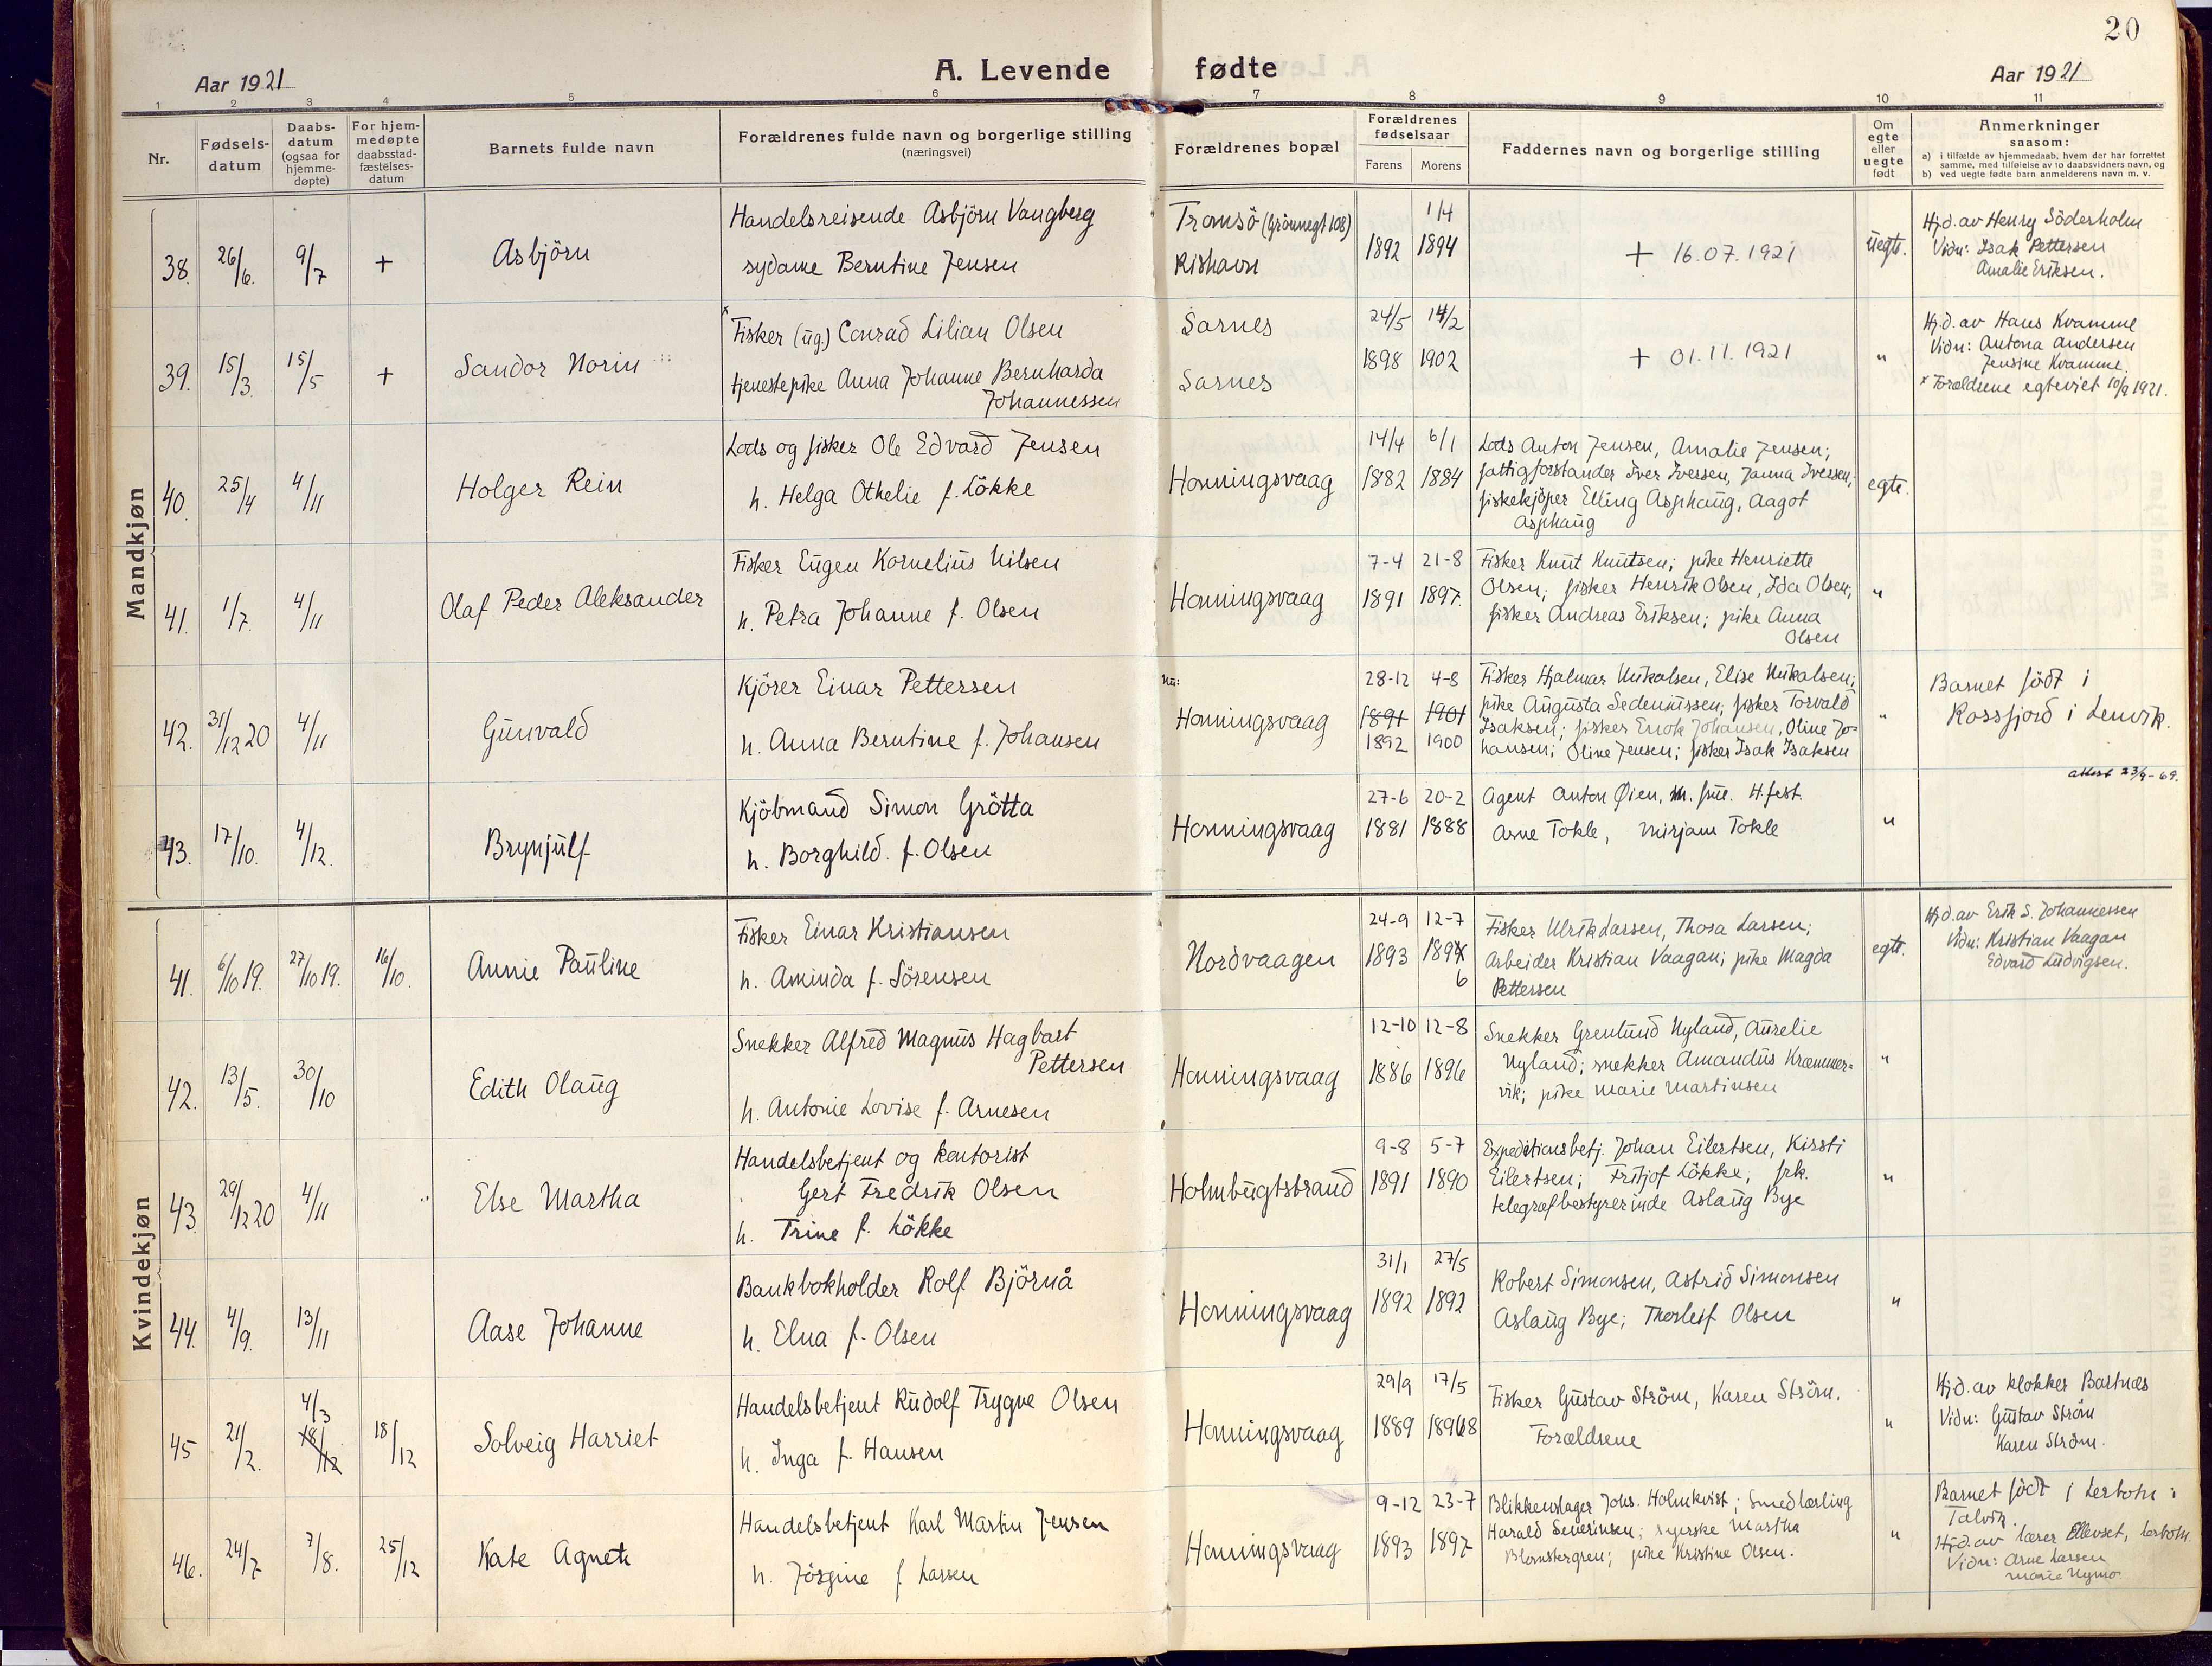 20
Aar 1921
A. Levende fødte
Aar 1921
1 2 3 4 5 6 7 8 9 10 11
Nr.
Fødsels-
datum
Daabs-
datum
(ogsaa for
hjemme-
døpte)
For hjem-
medøpte
daabsstad-
fæstelses-
datum
Barnets fulde navn
Forældrenes fulde navn og borgerlige stilling
(næringsvei)
Forældrenes bopæl
Forældrenes
fødselsaar
Farens Morens
Faddernes navn og borgerlige stilling
Om
egte
eller
uegte
født
Anmerkninger
saasom:
a) i tilfælde av hjemmedaab, hvem der har forrettet
samme, med tilføielse av to daabsvidners navn, og
b) ved uegte fødte barn anmelderens navn m. v.
Mandkjøn
38. 26/6. 9/7 + Asbjörn
Handelsreisende Asbjörn Vangberg
sydame Berntine Jensen
Tromsö (Grönnegt 108)
Rishavn
1/4
1892 1894
+ 16.07.1921
uegte.
Hjd. av Henry Söderholm
Vidn: Isak Pettersen
Amalie Eriksen.
39. 15/3. 15/5 + Sandor Norin
x Fisker (ug.) Conrad Lilian Olsen
tjenestepike Anna Johanne Bernharda
Johannessen
Sarnes
Sarnes
24/5 14/2
1898 1902
+ 01.11.1921
"
Hjd. av Hans Kvamme
Vidn: Antona Andersen
Jensine Kvamme.
x Forældrene egteviet 10/9 1921.
40. 25/4 4/11 Holger Rein
Lods og fisker Ole Edvard Jensen
h. Helga Othelie f. Lökke
Honningsvaag
14/4 6/1
1882 1884
Lods Anton Jensen, Amalie Jensen;
fattigforstander Iver Iversen, Janna Iversen;
fiskekjöper Elling Asphaug, Aagot
Asphaug
egte.
41. 1/7. 4/11 Olaf Peder Aleksander
Fisker Eugen Kornelius Nilsen
h. Petra Johanne f. Olsen
Honningsvaag
7-4 21-8
1891 1897.
Fisker Knut Knutsen; pike Henriette
Olsen; fisker Henrik Olsen, Ida Olsen;
fisker Andreas Eriksen; pike Anna
Olsen
"
42. 31/12 20 4/11 Gunvald
Kjörer Einar Pettersen
h. Anna Berntine f. Johansen
Nu:
Honningsvaag
28-12 4-8
1891 1901
1892 1900
Fisker Hjalmar Nikolsen, Elise Nikalsen;
pike Augusta Sedenissen; fisker Torvald
Isaksen; fisker Enok Johansen, Oline Jo-
hansen; Oline Jensen; fisker Isak Isaksen
"
Barnet födt i
Rossfjord i Lenvik.
attest 23/9-69.
43. 17/10. 4/12. Brynjulf
Kjöbmand Simon Grötta
h. Borghild. f. Olsen
Honningsvaag
27-6 20-2
1881 1888
Agent Anton Øien, m. fru. H.fest.
Arne Tokle, Mirjam Tokle
"
Kvindekjøn
41. 6/10 19. 27/10 19. 16/10. Annie Pauline
Fisker Einar Kristiansen
h. Aminda f. Sörensen
Nordvaagen
24-9 12-7
1893 1894
6
Fisker Ulrik Larsen, Thora Larsen;
Arbeider Kristian Vaagan; pike Magda
Pettersen
egte.
Hjd. av Erik S. Johannessen
Vidn: Kristian Vaagan
Edvard Ludvigsen.
42. 13/5. 30/10 Edith Olaug
Snekker Alfred Magnus Hagbart
Pettersen
h. Antonie Lovise f. Arnesen
Honningsvaag
12-10 12-8
1886 1896
Snekker Grenlund Nyland, Aurelie
Nyland; snekker Amandus Kræmmer-
vik; pike Marie Martinsen
"
43 29/12 20 4/11 Else Martha
Handelsbetjent og kontorist
Gert Fredrik Olsen
h. Trine f. Lökke
Holmbugtstrand
9-8 5-7
1891 1890
Expeditionsbetj. Johan Eilertsen, Kirsti
Eilertsen; Fritjof Lökke; frk.
telegrafbestyrerinde Aslaug Bye
"
44. 4/9. 13/11 Aase Johanne
Bankbokholder Rolf Björnå
h. Elna f. Olsen
Honningsvaag
31/1 27/5
1892 1892
Robert Simonsen, Astrid Simonsen
Aslaug Bye; Thorleif Olsen
"
45 21/2. 4/3 18/12 18/12 Solveig Harriet
Handelsbetjent Rudolf Trygve Olsen
h. Inga f. Hansen
Honningsvaag
29/9 17/5
1889 1898
Fisker Gustav Ström, Karen Ström.
Forældrene
"
Hjd. av klokker Bartnæs
Vidn: Gustav Ström
Karen Ström.
46. 24/7 7/8. 25/12 Kate Agnete
Handelsbetjent Karl Martin Jensen
h. Jörgine f Larsen
Honningsvaag
9-12 23-7
1893 1897
Blikkenslager Johs. Holmkvist; Smedlærling
Harald Severinsen; syerske Martha
Blomstergren; pike Kristine Olsen.
"
Barnet födt i Lerbotn i
Talvik.
Hjd. av lærer Ellevset, Lerbotn.
Vidn: Arne Larsen
Marie Nymo